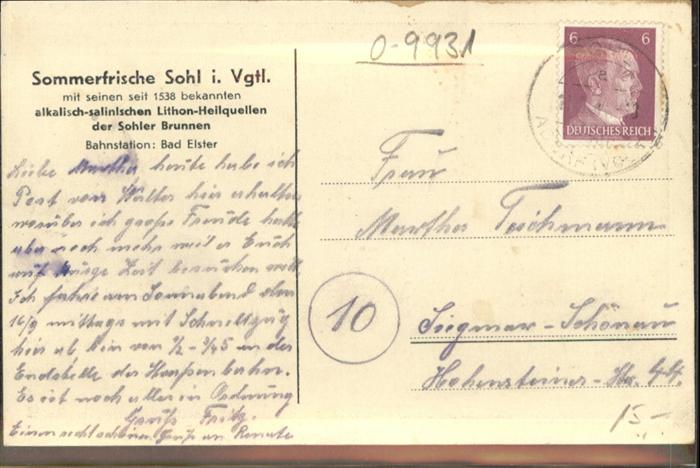 0-9931
Sommerfrische Sohl i. Vgtl.
mit seinen seit 1538 bekannten
alkalisch-salinischen Lithon-Heilquellen
der Sohler Brunnen
Bahnstation: Bad Elster
6 6
DEUTSCHES REICH
Liebe Martha, heute habe ich
Post von Walter hier erhalten
worüber ich große Freude hatte
aber noch mehr weil er Euch
auf Zeit besuchen will.
Ich fahre am Sonnabend den
16/9 mittags mit Schnellzug
hier ab, bin von 1/2 - 3/45 an der
Endstelle der
Es ist noch alles in Ordnung
Gruß Fritz.
Einen recht schönen Gruß an Renate
Frau
Martha Teichmann
10
Siegmar-Schönau
Hohensteiner-Str. 44
15-